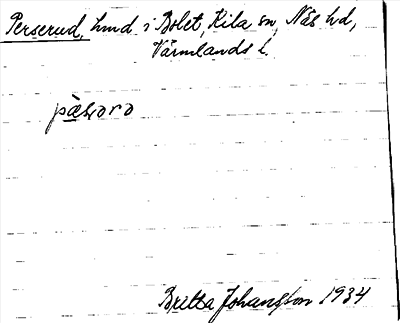 Perserud, hmd i Bolet, Kila sn, Näs hd,
Värmlands l.
pæs̩ərə
Britta Johansson 1934